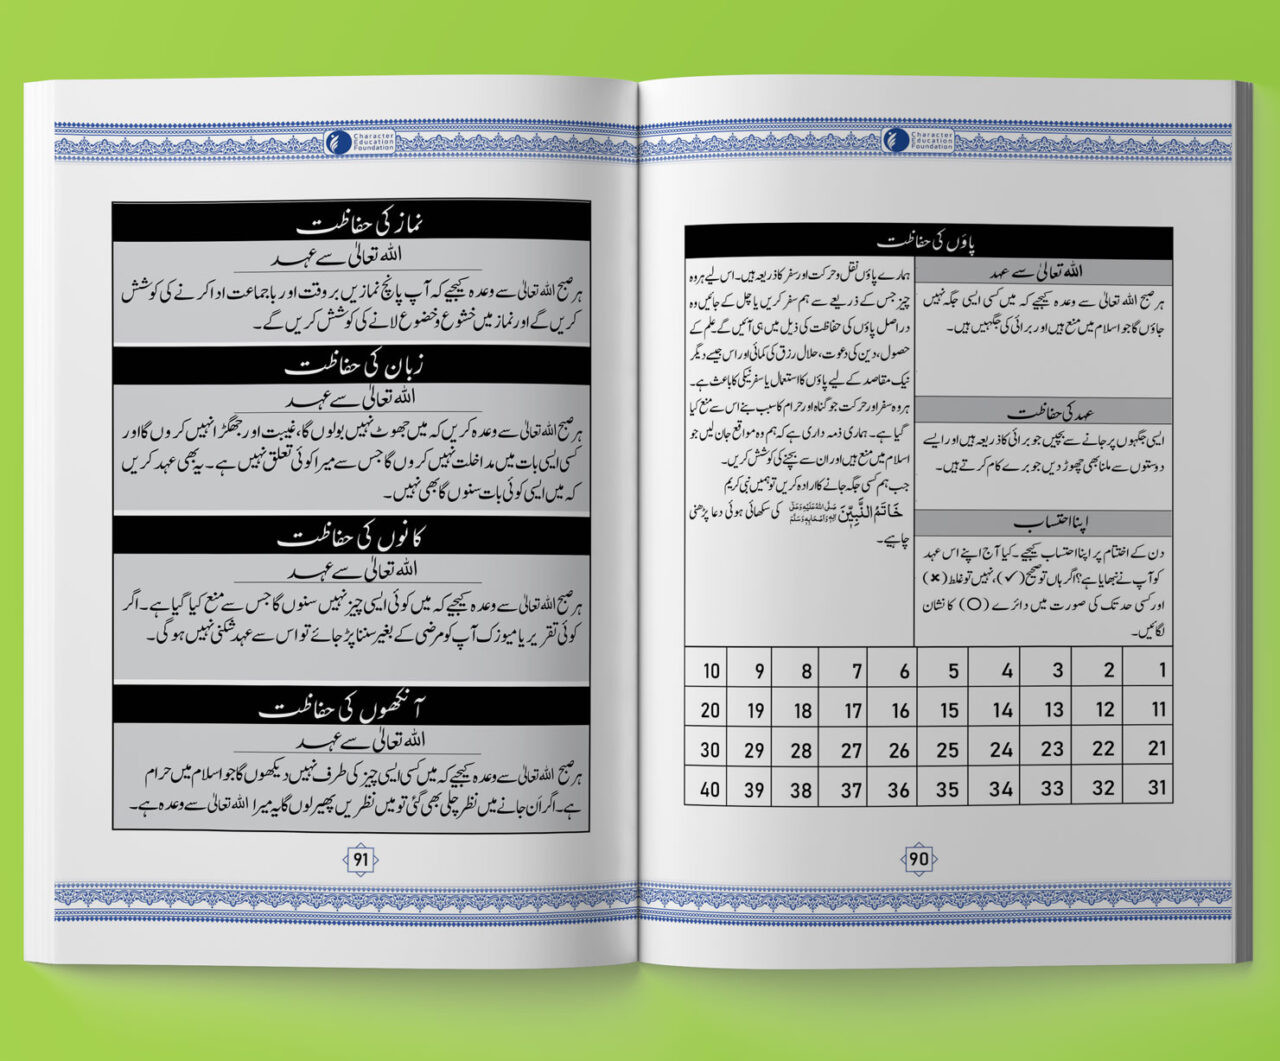 Character
Education
Foundation
پاؤں کی حفاظت
اللہ تعالیٰ سے عہد
ہر صبح اللہ تعالیٰ سے وعدہ کیجیے کہ میں کسی ایسی جگہ نہیں
جاؤں گا جو اسلام میں منع ہیں اور برائی کی جگہیں ہیں۔
عہد کی حفاظت
ایسی جگہوں پر جانے سے بچیں جو برائی کا ذریعہ ہیں اور ایسے
دوستوں سے ملنا بھی چھوڑ دیں جو برے کام کرتے ہیں۔
اپنا احتساب
دن کے اختتام پر اپنا احتساب کیجیے۔ کیا آج اپنے اس عہد
کو آپ نے نبھایا ہے؟ اگر ہاں تو صحیح (✓)، نہیں تو غلط (×)
اور کسی حد تک کی صورت میں دائرے (O) کا نشان
لگائیں۔
ہمارے پاؤں نقل و حرکت اور سفر کا ذریعہ ہیں۔ اس لیے ہر وہ
چیز جس کے ذریعے سے ہم سفر کریں یا چل کے جائیں وہ
دراصل پاؤں کی حفاظت کی ذیل میں ہی آئیں گے۔ علم کے
حصول، دین کی دعوت، حلال رزق کی کمائی اور اس جیسے دیگر
نیک مقاصد کے لیے پاؤں کا استعمال یا سفر نیکی کا باعث ہے۔
ہر وہ سفر اور حرکت جو گناہ اور حرام کا سبب بنے اس سے منع کیا
گیا ہے۔ ہماری ذمہ داری ہے کہ ہم وہ مواقع جان لیں جو
اسلام میں منع ہیں اور ان سے بچنے کی کوشش کریں۔
جب ہم کسی جگہ جانے کا ارادہ کریں تو ہمیں نبی کریم
خَاتَمُ النَّبِیّٖنَ صَلَّی اللہُ عَلَیْہِ وَعَلٰی اٰلِہٖ وَاَصْحَابِہٖ وَسَلَّمَ کی سکھائی ہوئی دعا پڑھنی
چاہیے۔
1 2 3 4 5 6 7 8 9 10
11 12 13 14 15 16 17 18 19 20
21 22 23 24 25 26 27 28 29 30
31 32 33 34 35 36 37 38 39 40
90
Character
Education
Foundation
نماز کی حفاظت
اللہ تعالیٰ سے عہد
ہر صبح اللہ تعالیٰ سے وعدہ کیجیے کہ آپ پانچ نمازیں بر وقت اور باجماعت ادا کرنے کی کوشش
کریں گے اور نماز میں خشوع و خضوع لانے کی کوشش کریں گے۔
زبان کی حفاظت
اللہ تعالیٰ سے عہد
ہر صبح اللہ تعالیٰ سے وعدہ کریں کہ میں جھوٹ نہیں بولوں گا، غیبت اور جھگڑا نہیں کروں گا اور
کسی ایسی بات میں مداخلت نہیں کروں گا جس سے میرا کوئی تعلق نہیں ہے۔ یہ بھی عہد کریں
کہ میں ایسی کوئی بات سنوں گا بھی نہیں۔
کانوں کی حفاظت
اللہ تعالیٰ سے عہد
ہر صبح اللہ تعالیٰ سے وعدہ کیجیے کہ میں کوئی ایسی چیز نہیں سنوں گا جس سے منع کیا گیا ہے۔ اگر
کوئی تقریر یا میوزک آپ کو مرضی کے بغیر سننا پڑ جائے تو اس سے عہد شکنی نہیں ہوگی۔
آنکھوں کی حفاظت
اللہ تعالیٰ سے عہد
ہر صبح اللہ تعالیٰ سے وعدہ کیجیے کہ میں کسی ایسی چیز کی طرف نہیں دیکھوں گا جو اسلام میں حرام
ہے۔ اگر اَن جانے میں نظر چلی بھی گئی تو میں نظریں پھیر لوں گا یہ میرا اللہ تعالیٰ سے وعدہ ہے۔
91